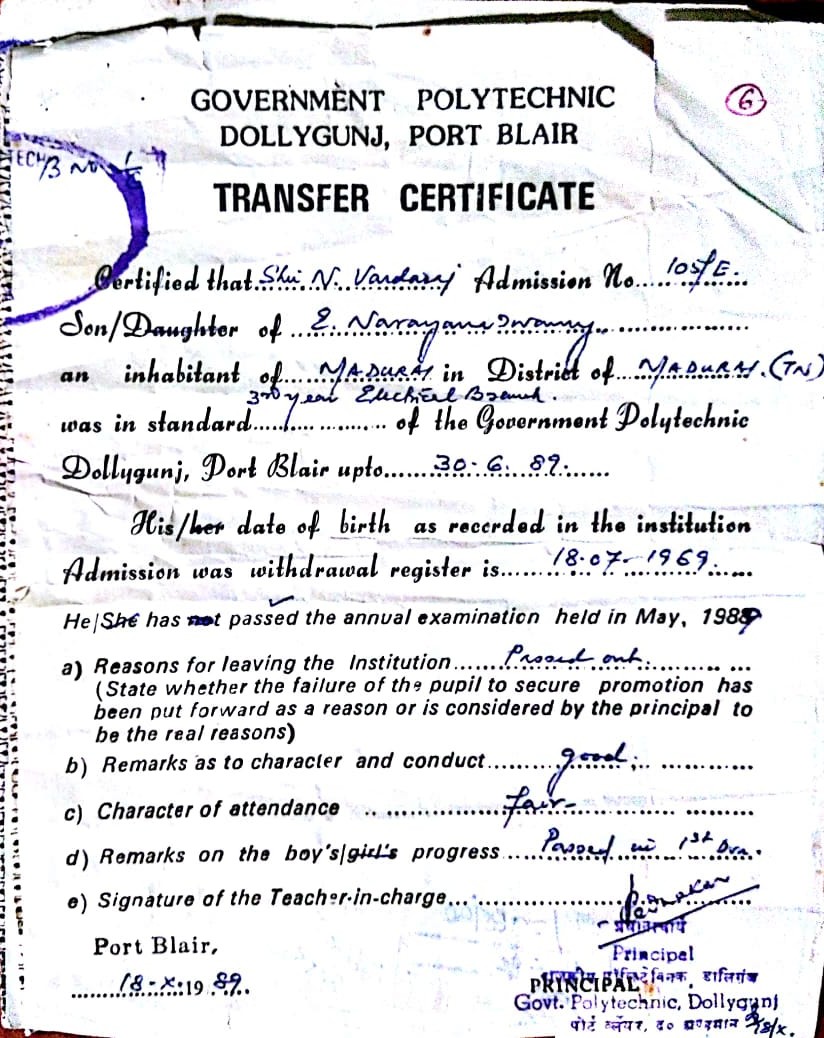 GOVERNMENT POLYTECHNIC
DOLLYGUNJ, PORT BLAIR
6
TECH/3 No
TRANSFER CERTIFICATE
Certified that Shri N. Vardaraj Admission No. 105/E.
Son/Daughter of E. Narayanaswamy
an inhabitant of MADURAI in District of MADURAI. (TN)
3rd year Electrical Branch.
was in standard of the Government Polytechnic
Dollygunj, Port Blair upto 30-6-89.
His/her date of birth as recorded in the institution
Admission was withdrawal register is 18-07-1969.
He/She has not passed the annual examination held in May, 1989
a) Reasons for leaving the Institution Passed out.
(State whether the failure of the pupil to secure promotion has
been put forward as a reason or is considered by the principal to
be the real reasons)
b) Remarks as to character and conduct good
c) Character of attendance fair
d) Remarks on the boy's/girl's progress Passed in 1st Dvn.
e) Signature of the Teacher-in-charge
Port Blair,
प्रधानाचार्य
Principal
18-X-1989.
PRINCIPAL
Govt. Polytechnic, Dollygunj
पोर्ट ब्लेयर, द० अण्डमान